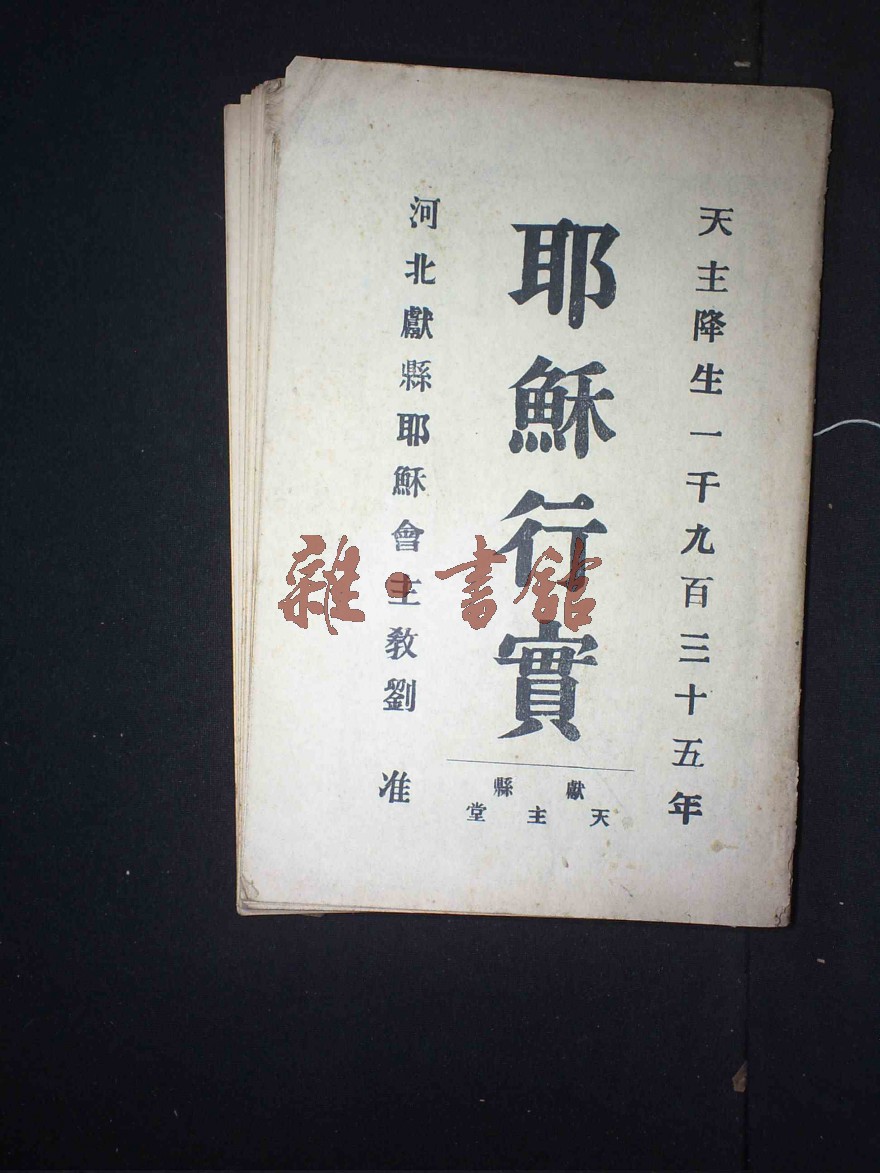 天主降生一千九百三十五年
耶穌行實
獻縣
天主堂
河北獻縣耶穌會主教劉 准
雜·書館